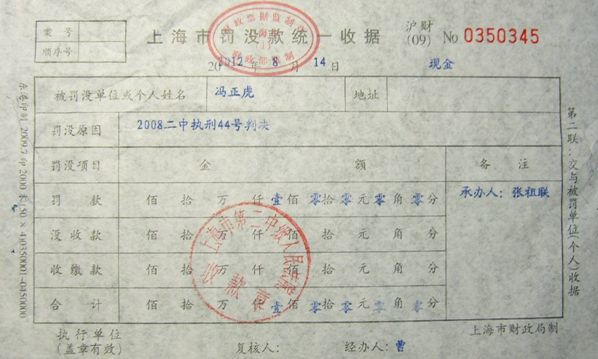 案号
顺序号
上海市罚没款统一收据
沪财
(09)
No 0350345
2012年8月14日
现金
被罚没单位或个人姓名 冯正虎 地址
罚没原因 2008二中执刑44号判决
罚没项目 金额 备注
罚款 佰拾万仟壹佰零拾零元零角零分 承办人：张祖联
没收款 佰拾万仟佰拾元角分
收缴款 佰拾万仟佰拾元角分
合计 佰拾万仟壹佰零拾零元零角零分
上海市第二中级人民法院
收款章
执行单位
(盖章有效)
复核人：
经办人：曹
上海市财政局制
第二联：交与被罚单位(个人)收据